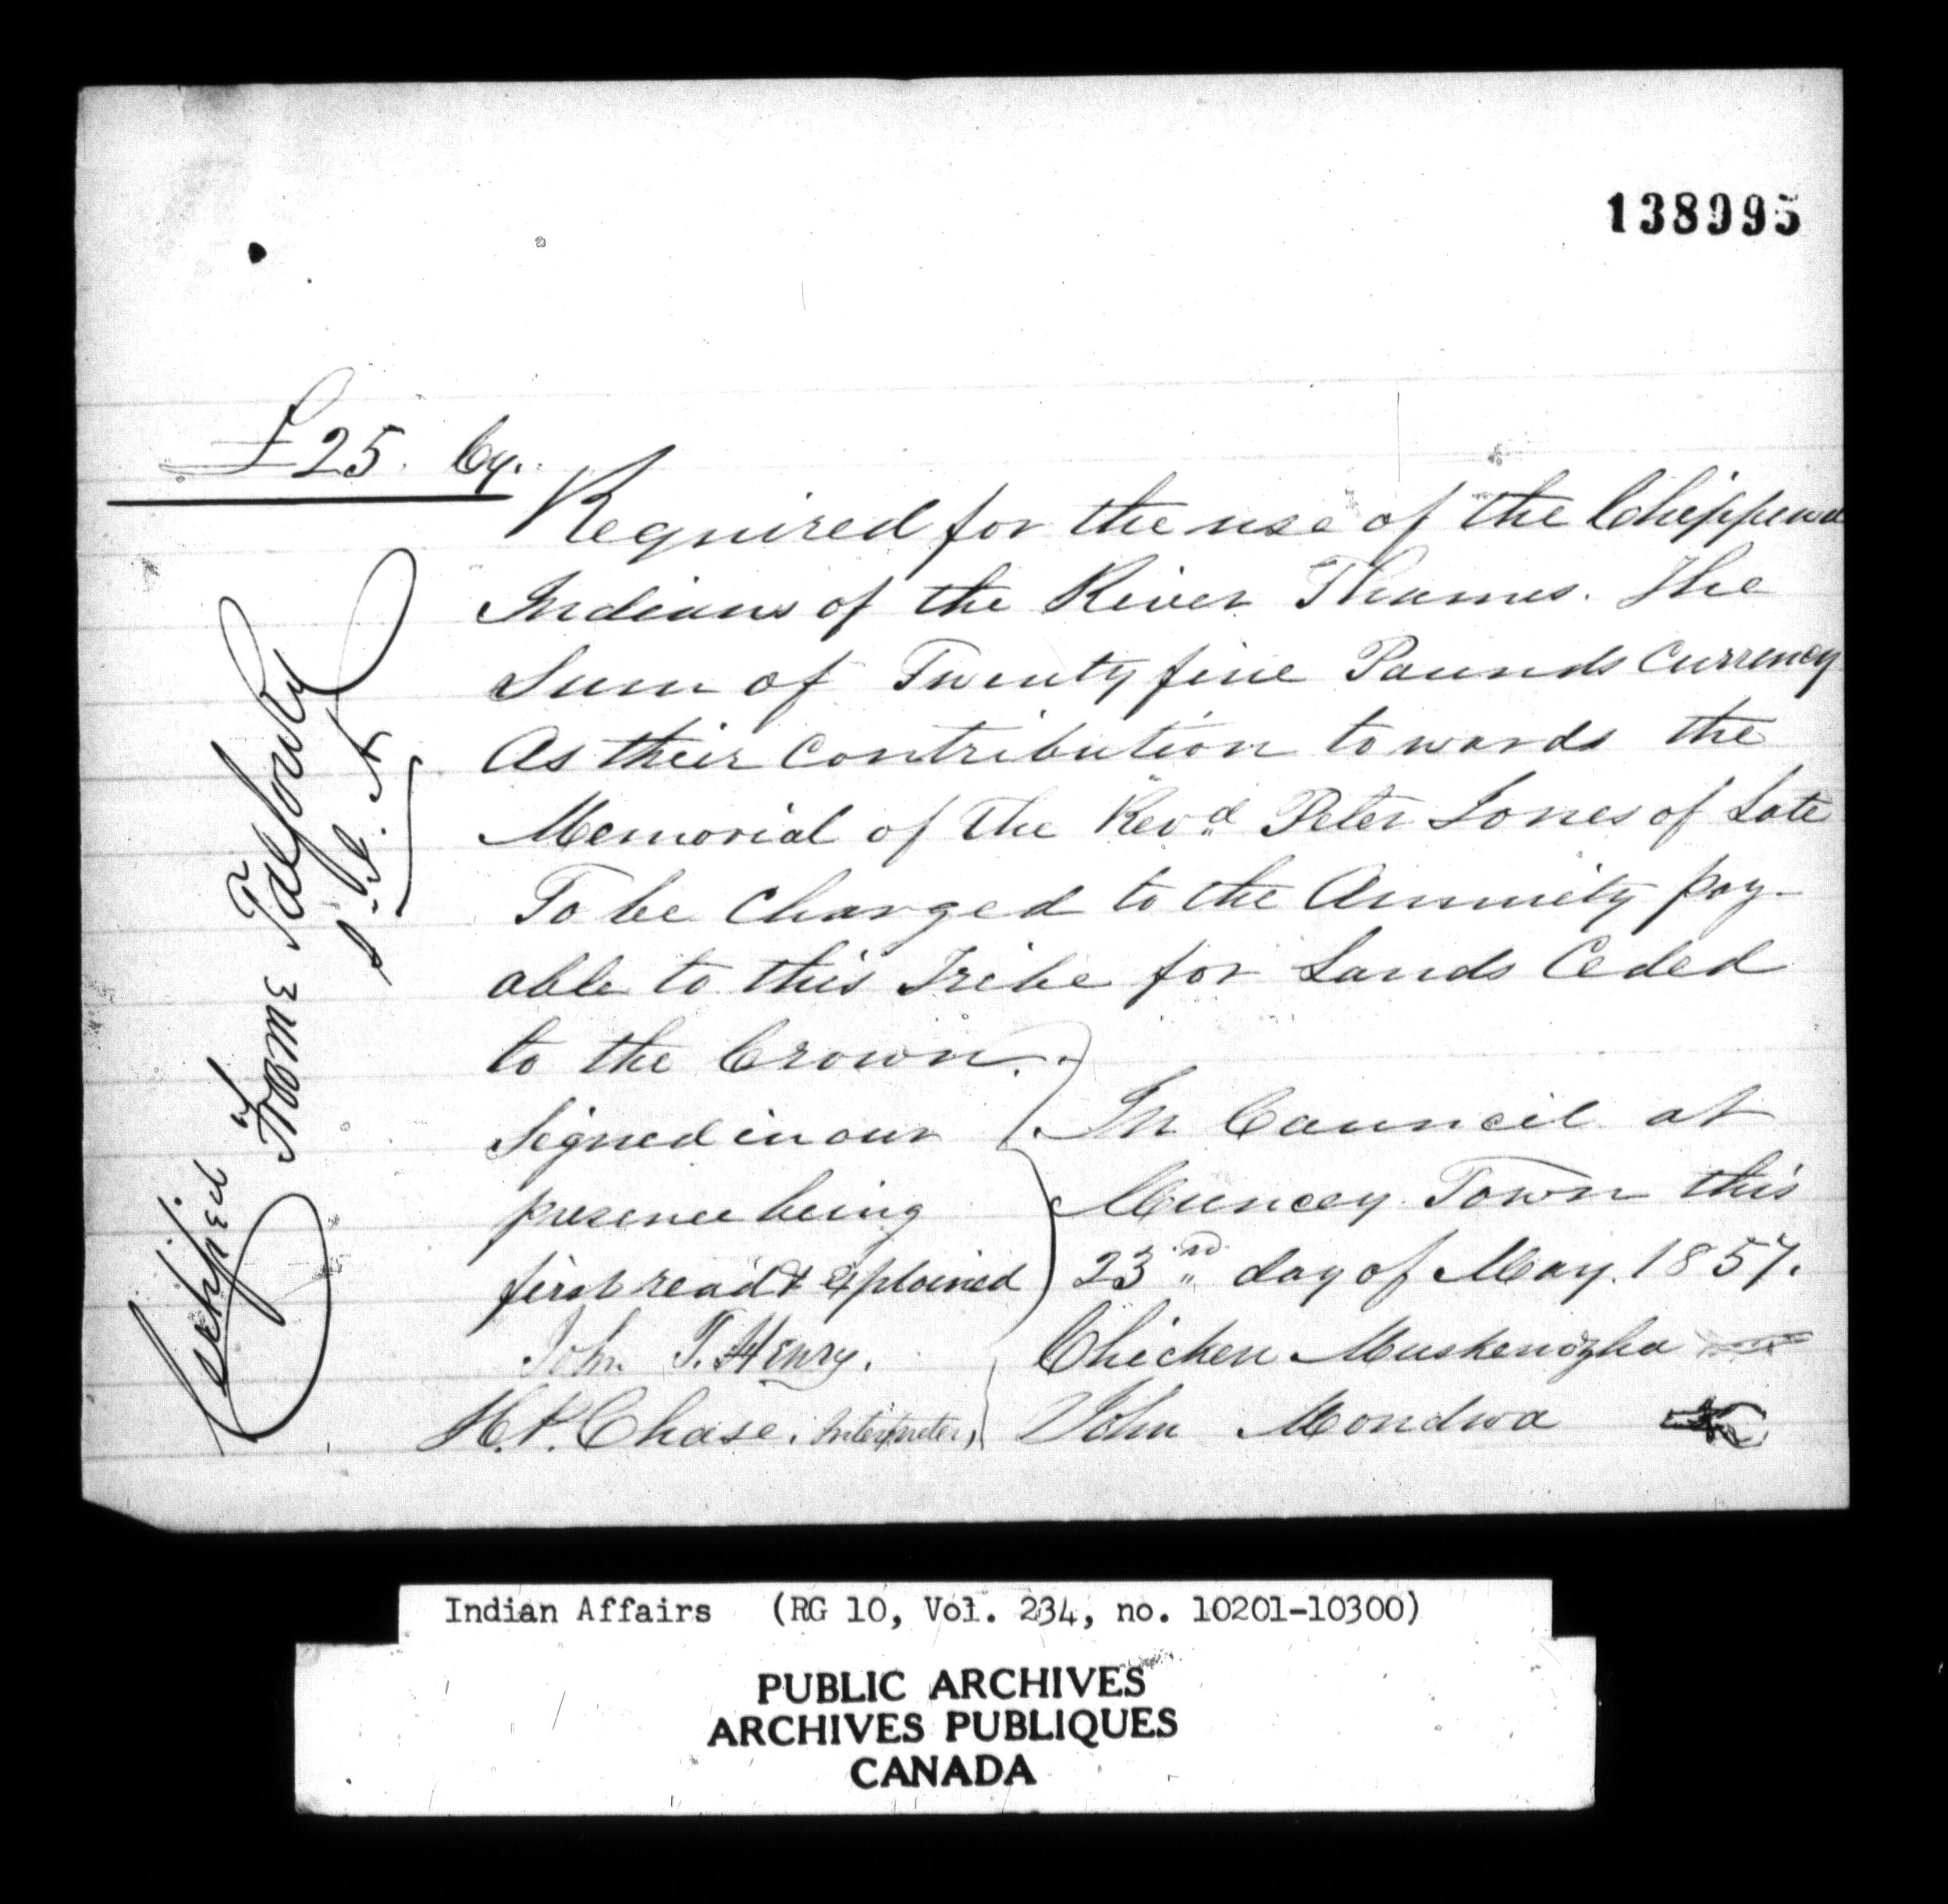 138995
£25. Cy.
Required for the use of the Chippewa
Indians of the River Thames. The
Sum of Twenty five Pounds Currency
As their Contribution towards the
Memorial of The Revd. Peter Jones of Late
To be Charged to the Annuity pay-
able to this Tribe for Lands Ceded
to the Crown.
Signed in our
presence being
first read & explained
John T. Henry.
H. P. Chase. Interpreter,
In Council at
Muncey Town this
23rd day of May. 1857.
Chicken Muskenozha
John Mondwa
Certified
Froome Talfourd
S. I. A
Indian Affairs (RG 10, Vol. 234, no. 10201-10300)
PUBLIC ARCHIVES
ARCHIVES PUBLIQUES
CANADA